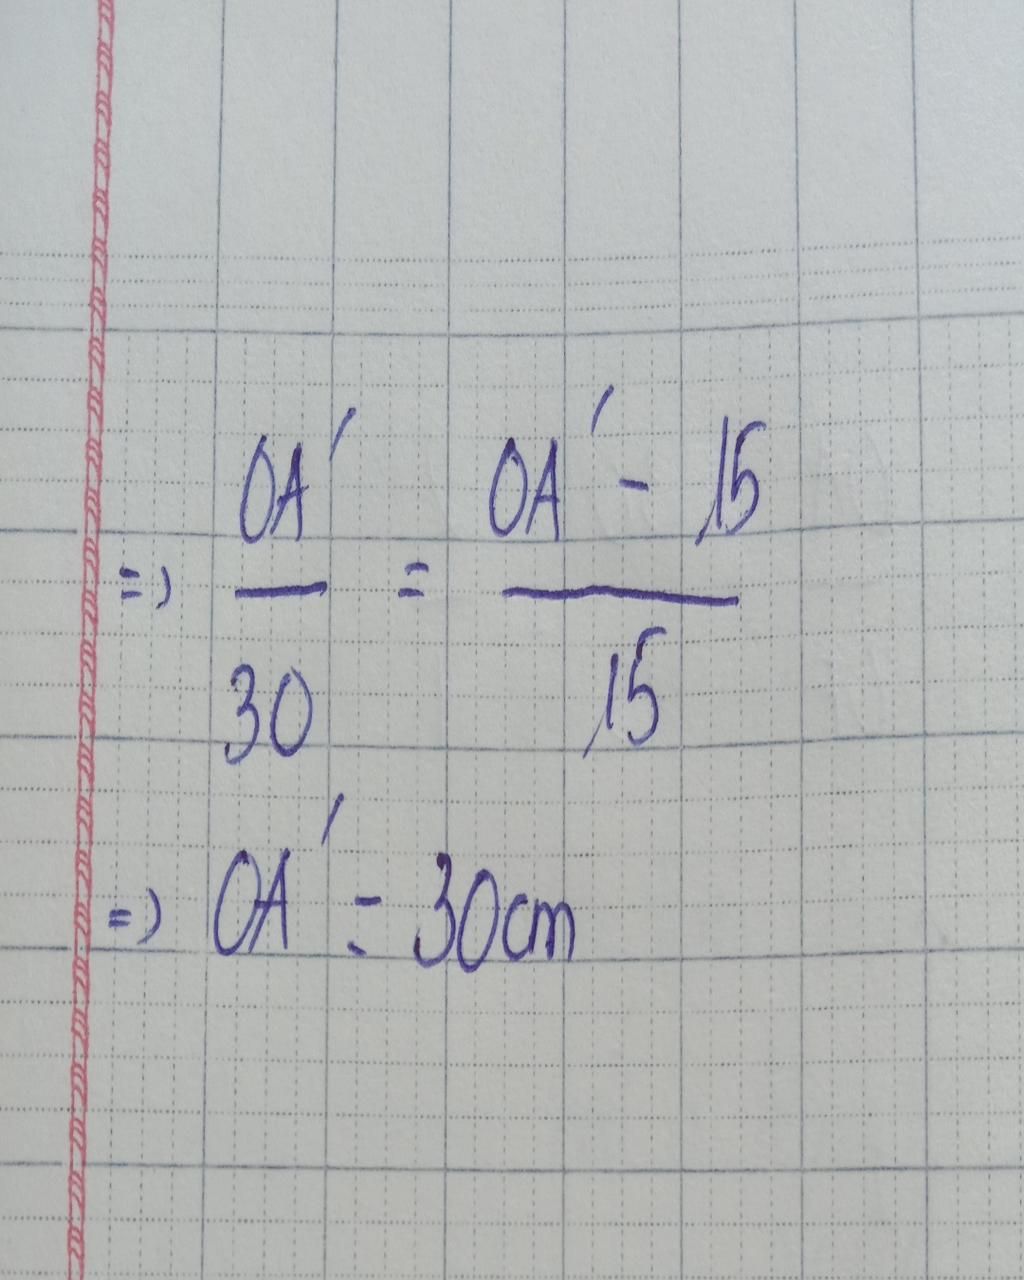 => OA'/30 = OA' - 15/15
=> OA' = 30cm